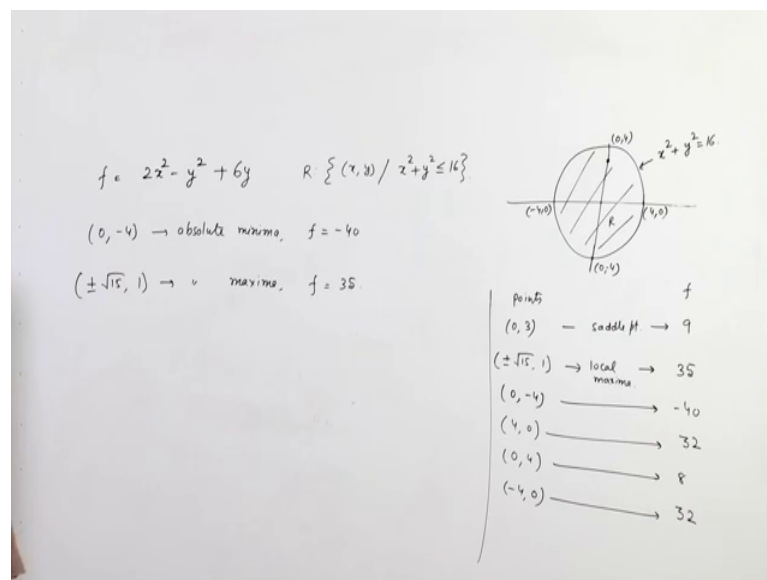 f = 2x² - y² + 6y R: { (x, y) / x² + y² ≤ 16 }.
(0, -4) → absolute minima, f = -40
(± √15, 1) → " maxima, f = 35.
(0,4)
x² + y² = 16.
(-4,0)
(4,0)
R
(0,-4)
points f
(0, 3) — saddle pt. → 9
(± √15, 1) → local maxima. → 35
(0, -4) → -40
(4, 0) → 32
(0, 4) → 8
(-4, 0) → 32